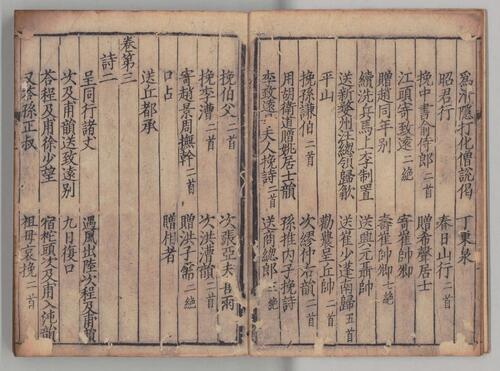 爲沂隱打化僧說偈
丁東泉
昭君行
春日山行 二首
挽中書俞侍郎 二首
贈希聲居士
江頭寄致遠 二絕
寄崔帥卿
贈趙同年別
壽崔帥卿 七絕
續洗兵馬上李制置
送與元蕭帥
送新夔州汪總領歸歙
送崔少蓬南歸 五首
平山
勸農呈丘帥 二首
挽孫謙伯 二首
次繆仲右韻 二首
用胡衛道贈姚居士韻
孫推內子挽詩
李致遠夫人挽詩 二首
送商總郎 三絕
挽伯父 二首
次張亞夫
挽李漕 二首
次洪漕韻 二首
寄趙景周撫幹 二首
贈洪子儒 二絕
口占
贈相者
送丘都承
卷第三
詩二
呈同行諸丈
遇風出陸次程及甫韻
次及甫韻送致遠別
九日復口
答程及甫徐少望
宿柁頭次及甫入沌韻
又答孫正叔
祖母哀挽 二首